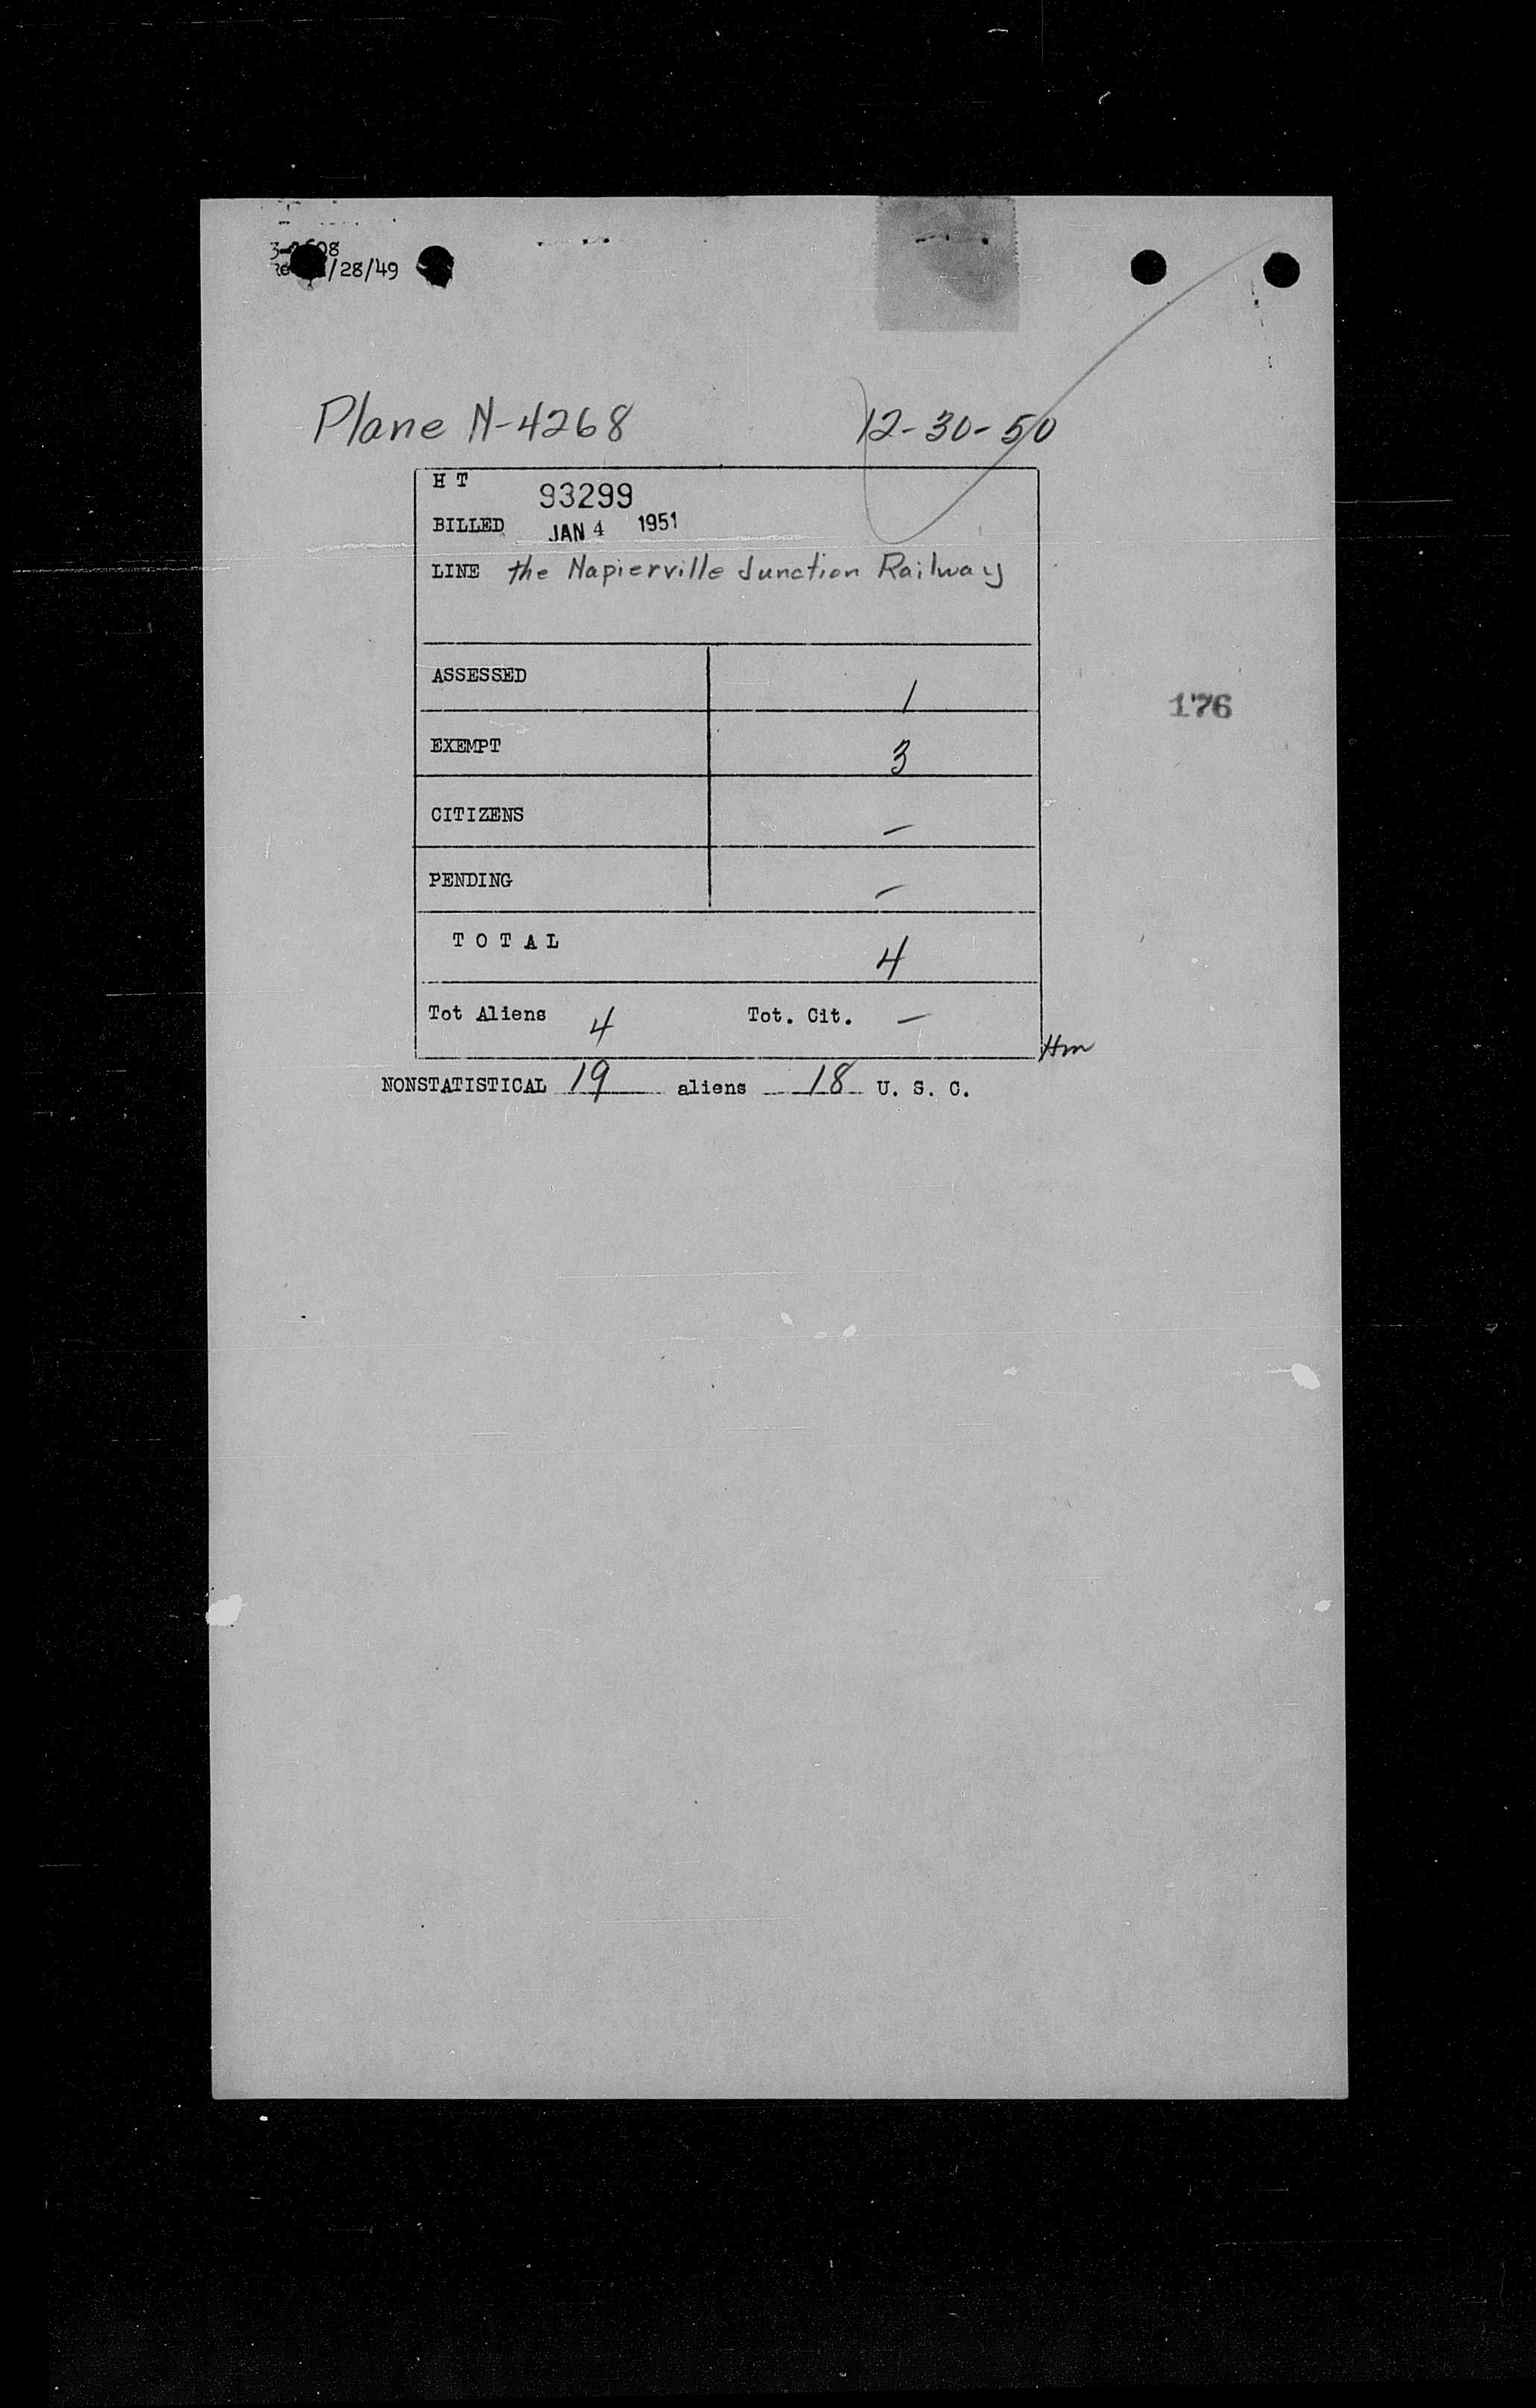 /28/49
Plane N-4268 12-30-50
H T 93299
BILLED JAN 4 1951
LINE the Napierville Junction Railway
ASSESSED 1
176
EXEMPT 3
CITIZENS –
PENDING –
T O T A L 4
Tot Aliens 4 Tot. Cit. –
Hm
NONSTATISTICAL 19 aliens 18 U. S. C.